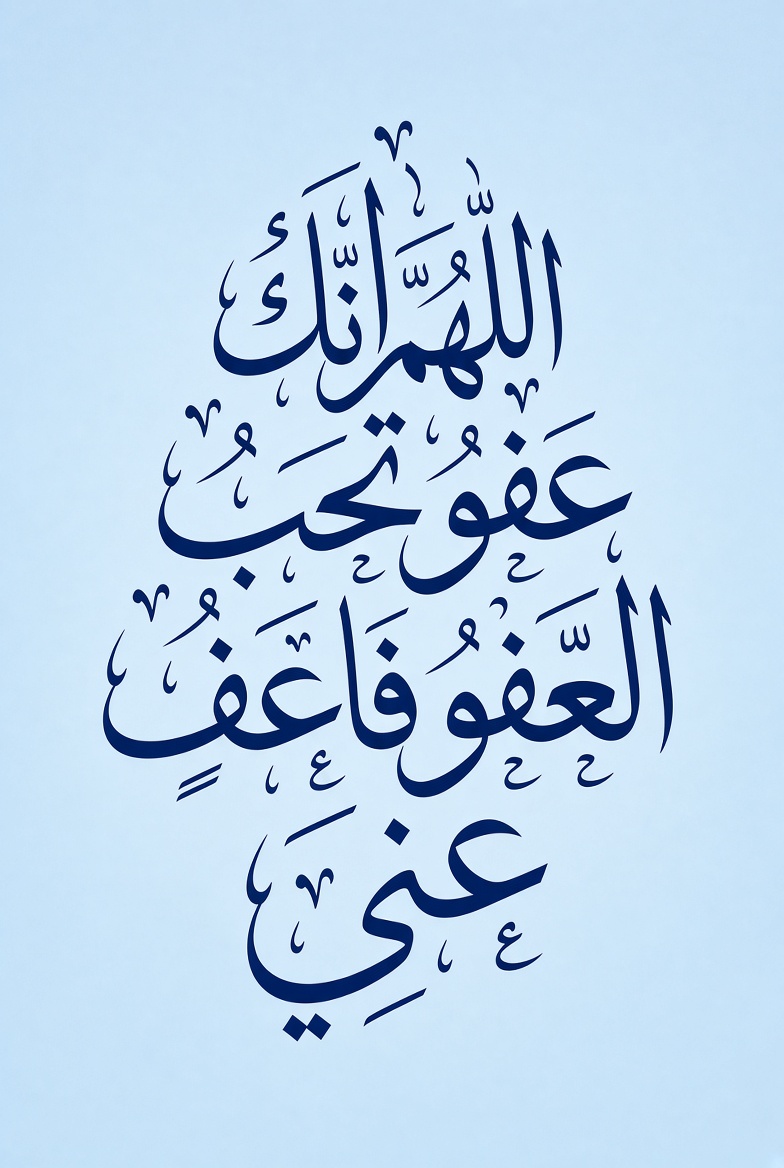 اللَّهُمَّ انَّكَ
عَفوُ تحَبُ
العَّفوُ فَاعَفُ
عنِيَ